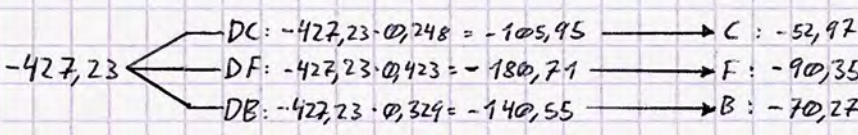 DC: -427,23·0,248 = -105,95 → C : -52,97
-427,23 DF: -427,23·0,423 = - 180,71 → F : -90,35
DB: -427,23·0,329 = -140,55 → B : -70,27